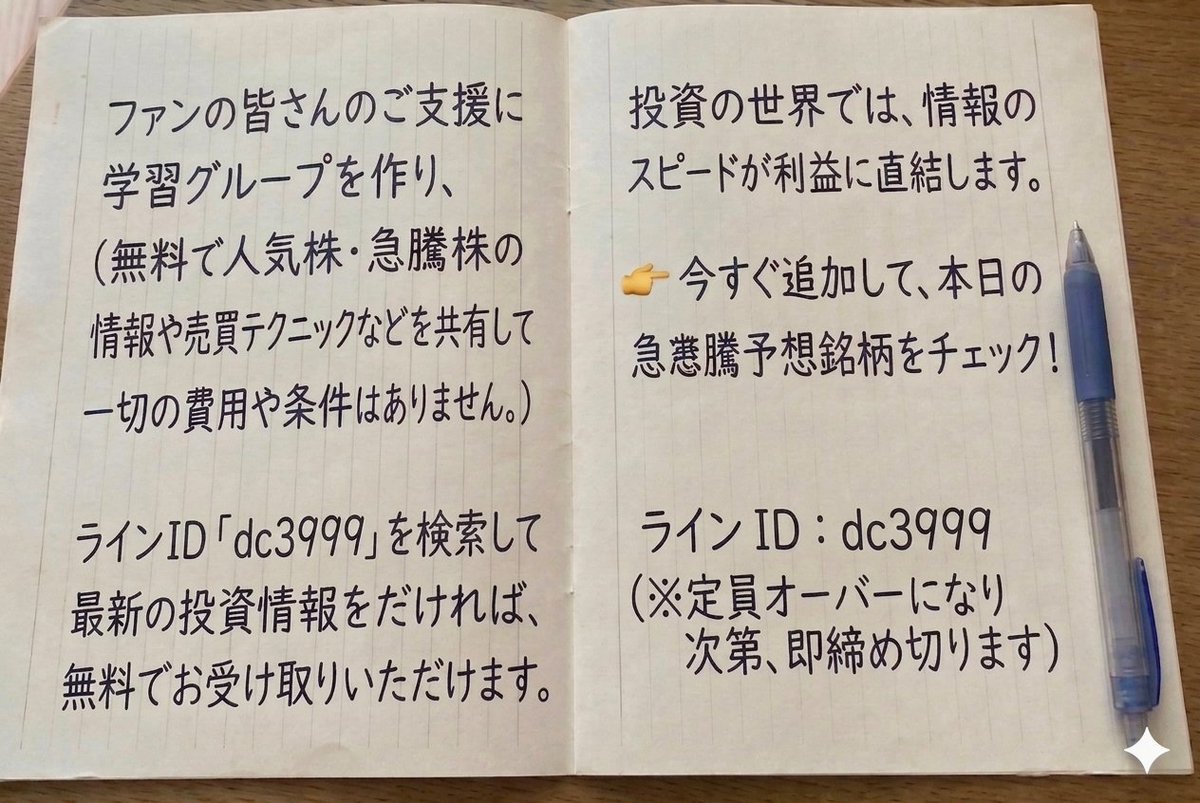 ファンの皆さんのご支援に
学習グループを作り、
(無料で人気株・急騰株の
情報や売買テクニックなどを共有して
一切の費用や条件はありません。)
ラインID「dc3999」を検索して
最新の投資情報をだければ、
無料でお受け取りいただけます。
投資の世界では、情報の
スピードが利益に直結します。
👉 今すぐ追加して、本日の
急騰予想銘柄をチェック!
ライン ID:dc3999
(※定員オーバーになり
次第、即締め切ります)